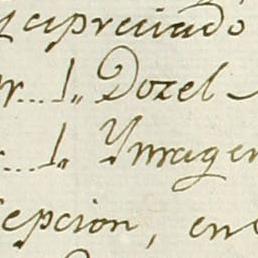 y apreciado
r...1,, Dozel
...1,, Ymagen
cepcion, en